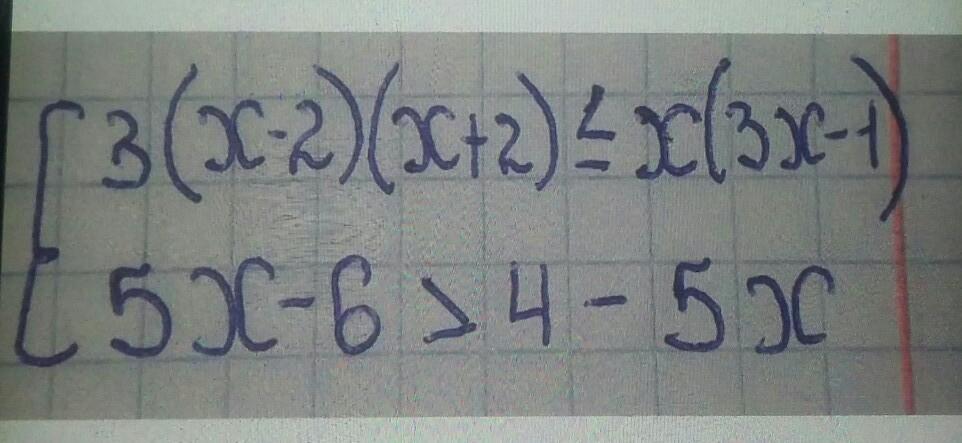 3(x-2)(x+2)≤x(3x-1)
5x-6>4-5x